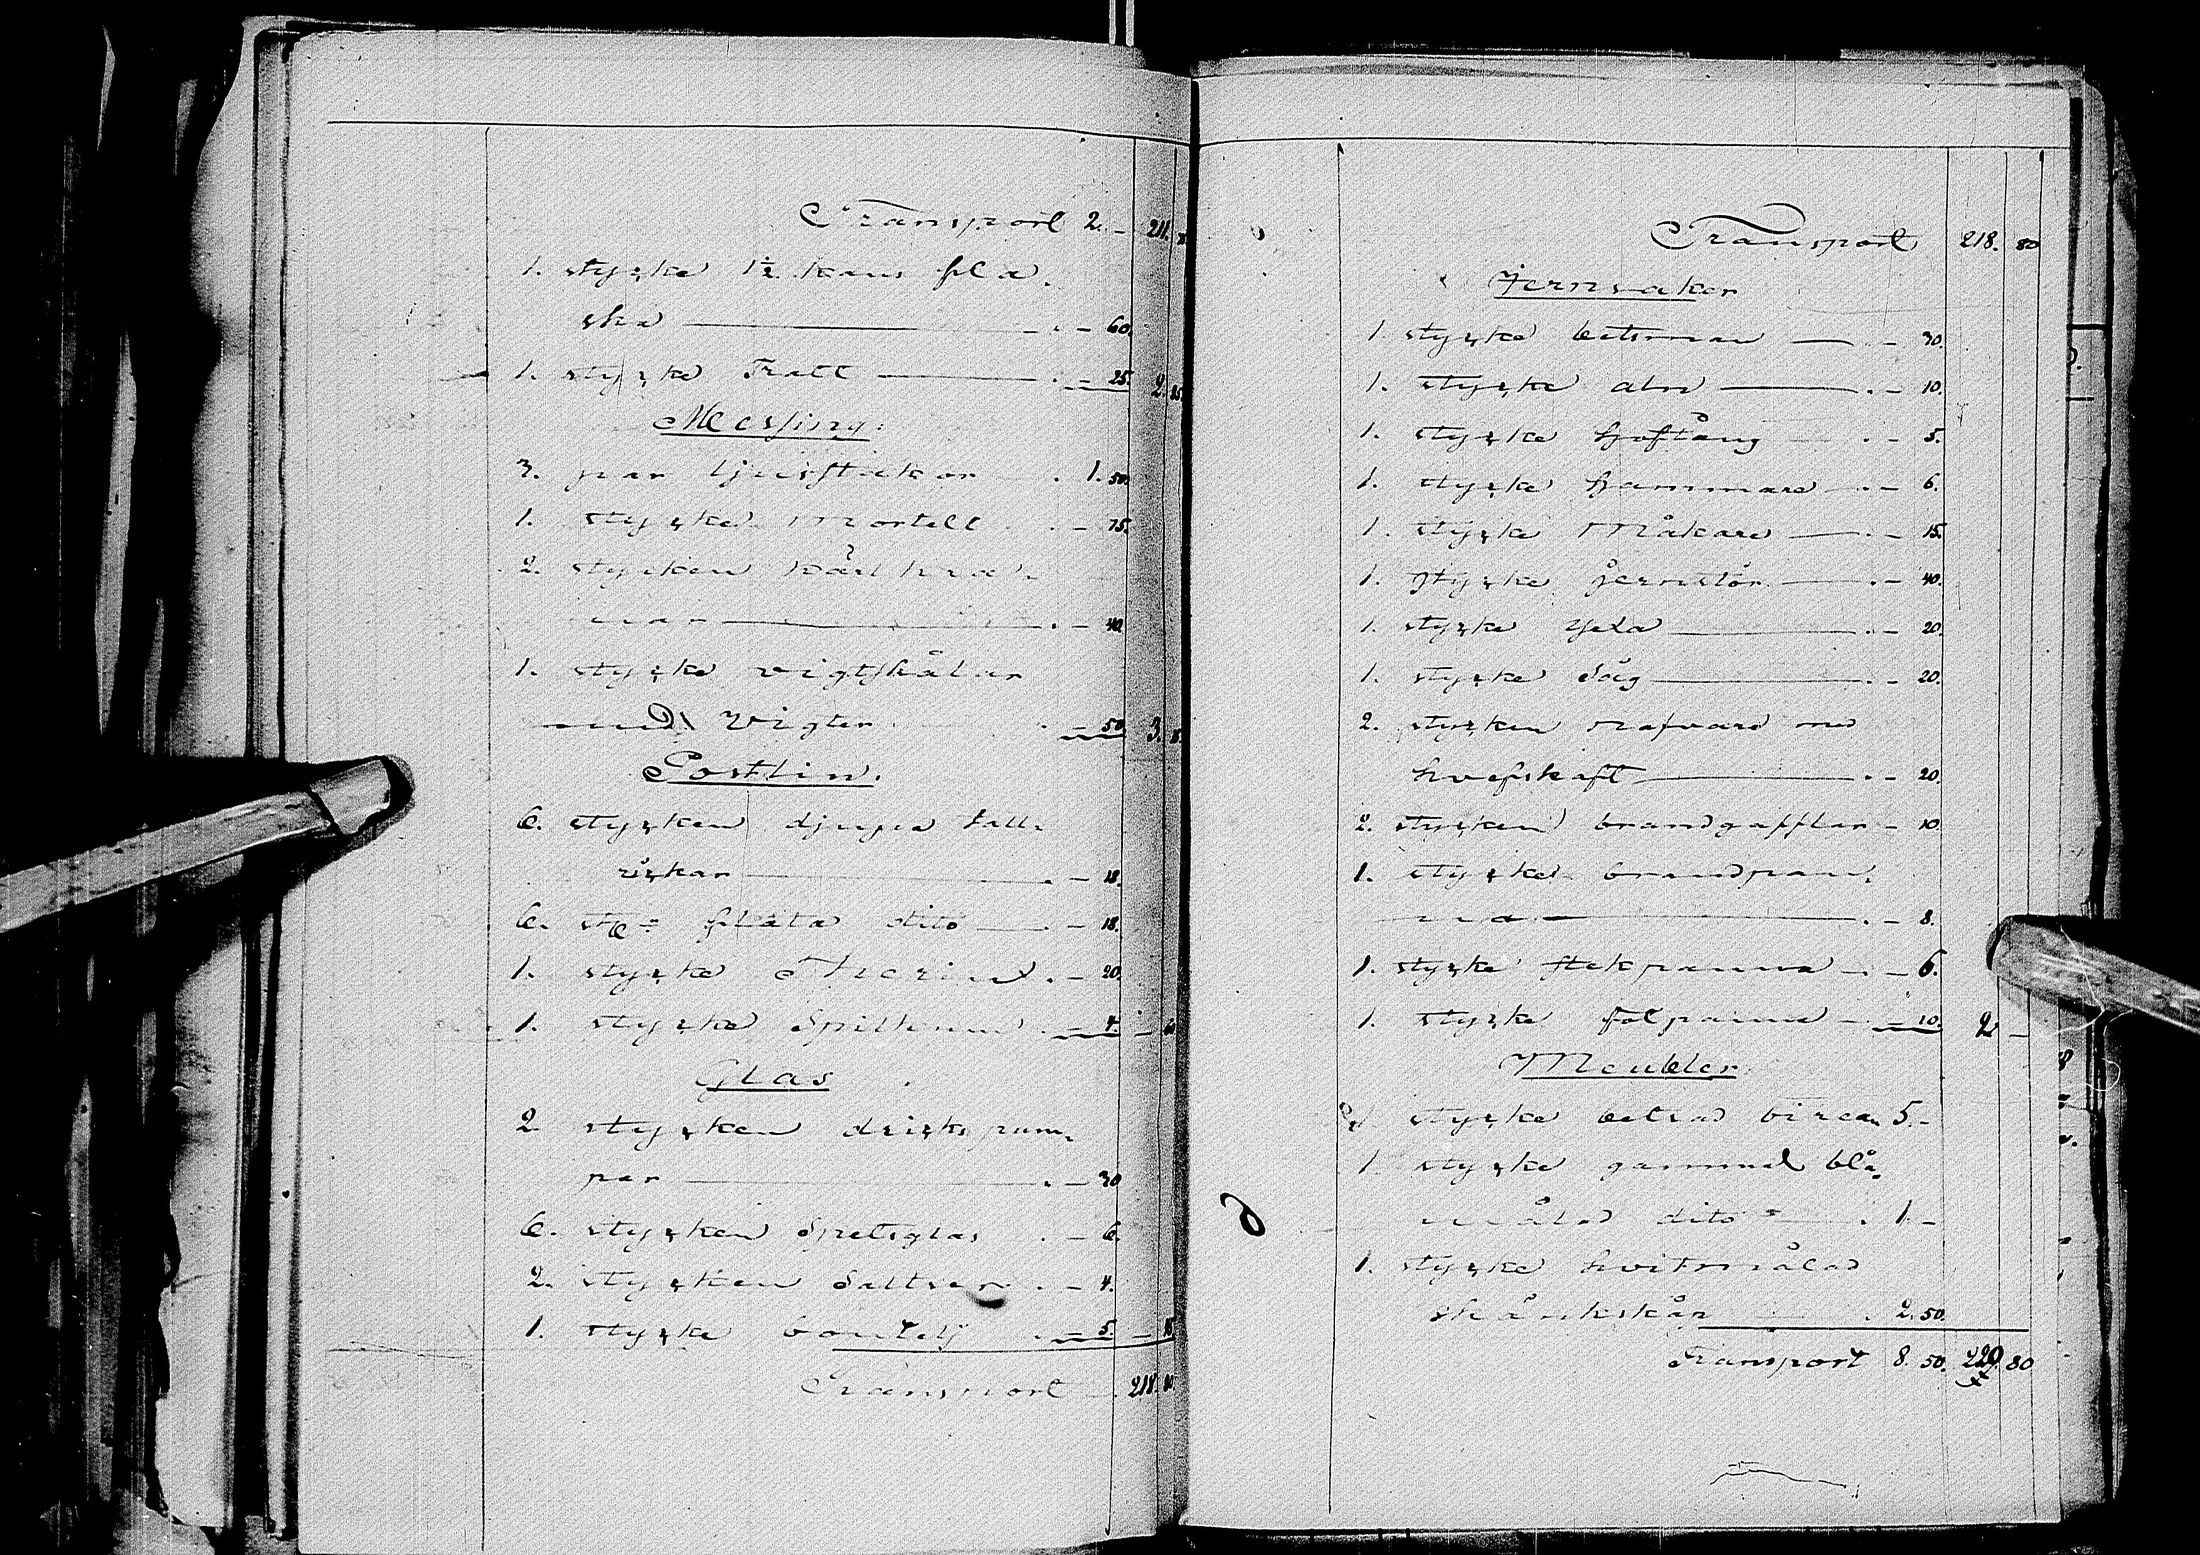 Transport 2. — 211.
1. stycke 1½ kans fla„
ska — . — 60.
1. stycke Tratt — . — 25. 2. 85.
Messing.
3. par ljusstakar . 1. 50.
1. stycke Mortell . — 75.
2. stycken kårlkra„
nar — . — 40.
1. stycke vigtskålar
med Vigter . — 50. 3. 15.
Postlin.
6. stycken djupa tall„
rickar — . — 18.
6. st: flata dito — . — 18.
1. stycke Therin . — 20
1. stycke Spilkum . — 4. — 60
Glas
2 stycken dricks pum„
par — . — 30
6. stycken Spetsglas . — 6.
2. stycken Saltser . — 4.
1. stycke boutelj . — 5. — 45
Transport — 218. 80.
Transport 218. 80
Jernsaker
1. stycke betsman — . — 30.
1. stycke aln — . — 10.
1. stycke Hoftång . — 5.
1. stycke hammare . — 6.
1. stycke Måkare — . — 15.
1. stycke Jernstör — . — 40.
1. stycke yxa — . — 20.
1. stycke Såg — . — 20.
2. stycken nafvare med
hvefskaft — . — 20.
2. stycken brandgafflar — 10.
1. stycke brandpan„
na — . — 8.
1. stycke stekpanna — . — 6.
1. stycke folpanna — . — 10. 2 —
Meubler
1 stycke betsad birea 5. —
1. stycke gammal blå„
målad dito — . 1. —
1. stycke hvitmålad
skänkskåp — . 2. 50.
Transport 8. 50. 220. 80